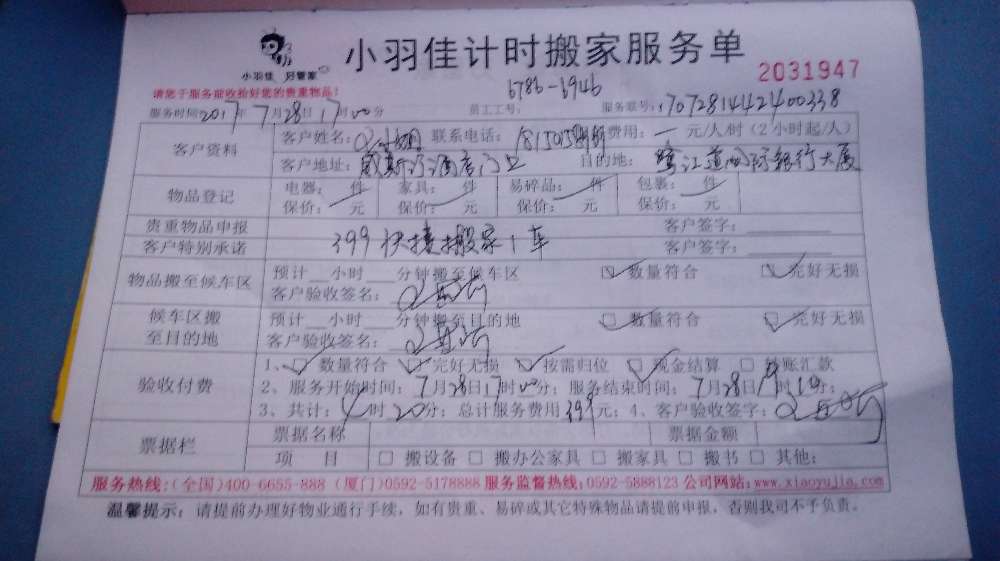 小羽佳计时搬家服务单
小羽佳 好管家
2031947
请您于服务前收拾好您的贵重物品！
6786-6946
服务时间：2017年7月28日17时00分 员工工号： 服务账号：1707281442400338
客户资料
客户姓名： 联系电话： 费用：一元/人/时（2小时起/人）
客户地址： 酒店门口 目的地：鹭江道国际银行大厦
物品登记
电器： 件 家具： 件 易碎品： 件 包裹： 件
保价： 元 保价： 元 保价： 元 保价： 元
贵重物品申报 客户签字：
客户特别承诺 399快捷搬家1车 客户签字：
物品搬至候车区
预计 小时 分钟搬至候车区 数量符合 完好无损
客户验收签名：
候车区搬至目的地
预计 小时 分钟搬至目的地 数量符合 完好无损
客户验收签名：
验收付费
1、数量符合 完好无损 按需归位 现金结算 转账汇款
2、服务开始时间：7月28日17时00分；服务结束时间：7月28日 时 分；
3、共计： 时20分；总计服务费用399元；4、客户验收签字：
票据栏
票据名称 票据金额
项 目 □ 搬设备 □ 搬办公家具 □ 搬家具 □ 搬书 □ 其他：
服务热线：(全国)400-6655-888 (厦门)0592-5178888 服务监督热线：0592-5888123 公司网站：www.xiaoyujia.com
温馨提示：请提前办理好物业通行手续，如有贵重、易碎或其它特殊物品请提前申报，否则我司不予负责。